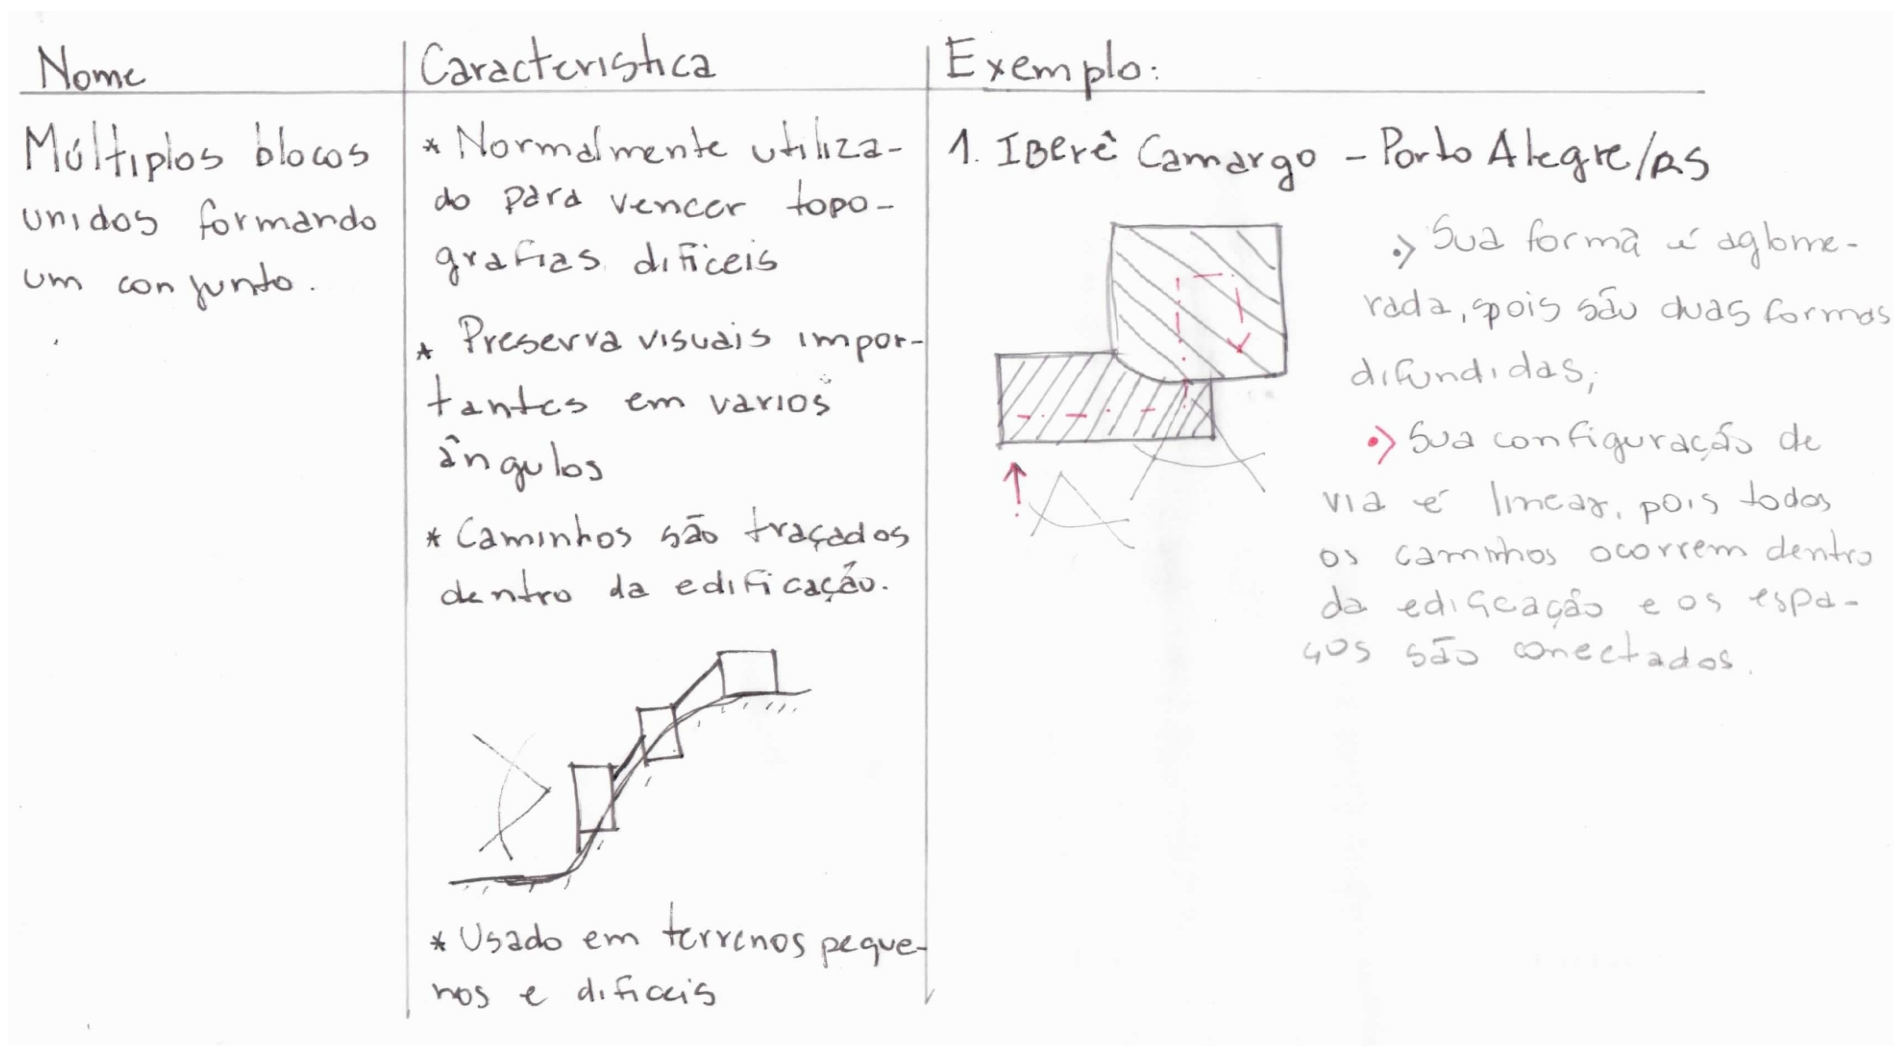 Nome
Caracteristica
Exemplo:
Múltiplos blocos
unidos formando
um conjunto.
* Normalmente utiliza-
do para vencer topo-
grafias difíceis
* Preserva visuais impor-
tantes em varios
ângulos
* Caminhos são traçados
dentro da edificação.
* Usado em terrenos peque-
nos e dificeis
1. IBerê Camargo - Porto Alegre/RS
•> Sua forma é aglome-
rada, pois são duas formas
difundidas;
•> Sua configuração de
via é linear, pois todos
os caminhos ocorrem dentro
da edificação e os espa-
ços são conectados.